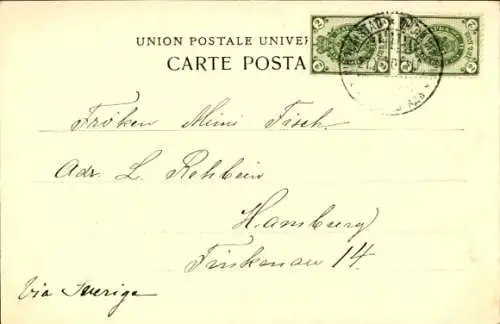 UNION POSTALE UNIVER
CARTE POSTA
2 2 2
Fröken Meini Fisch.
Adr. L. Rehbein
Hamburg
Finkenau 14.
Via Sverige